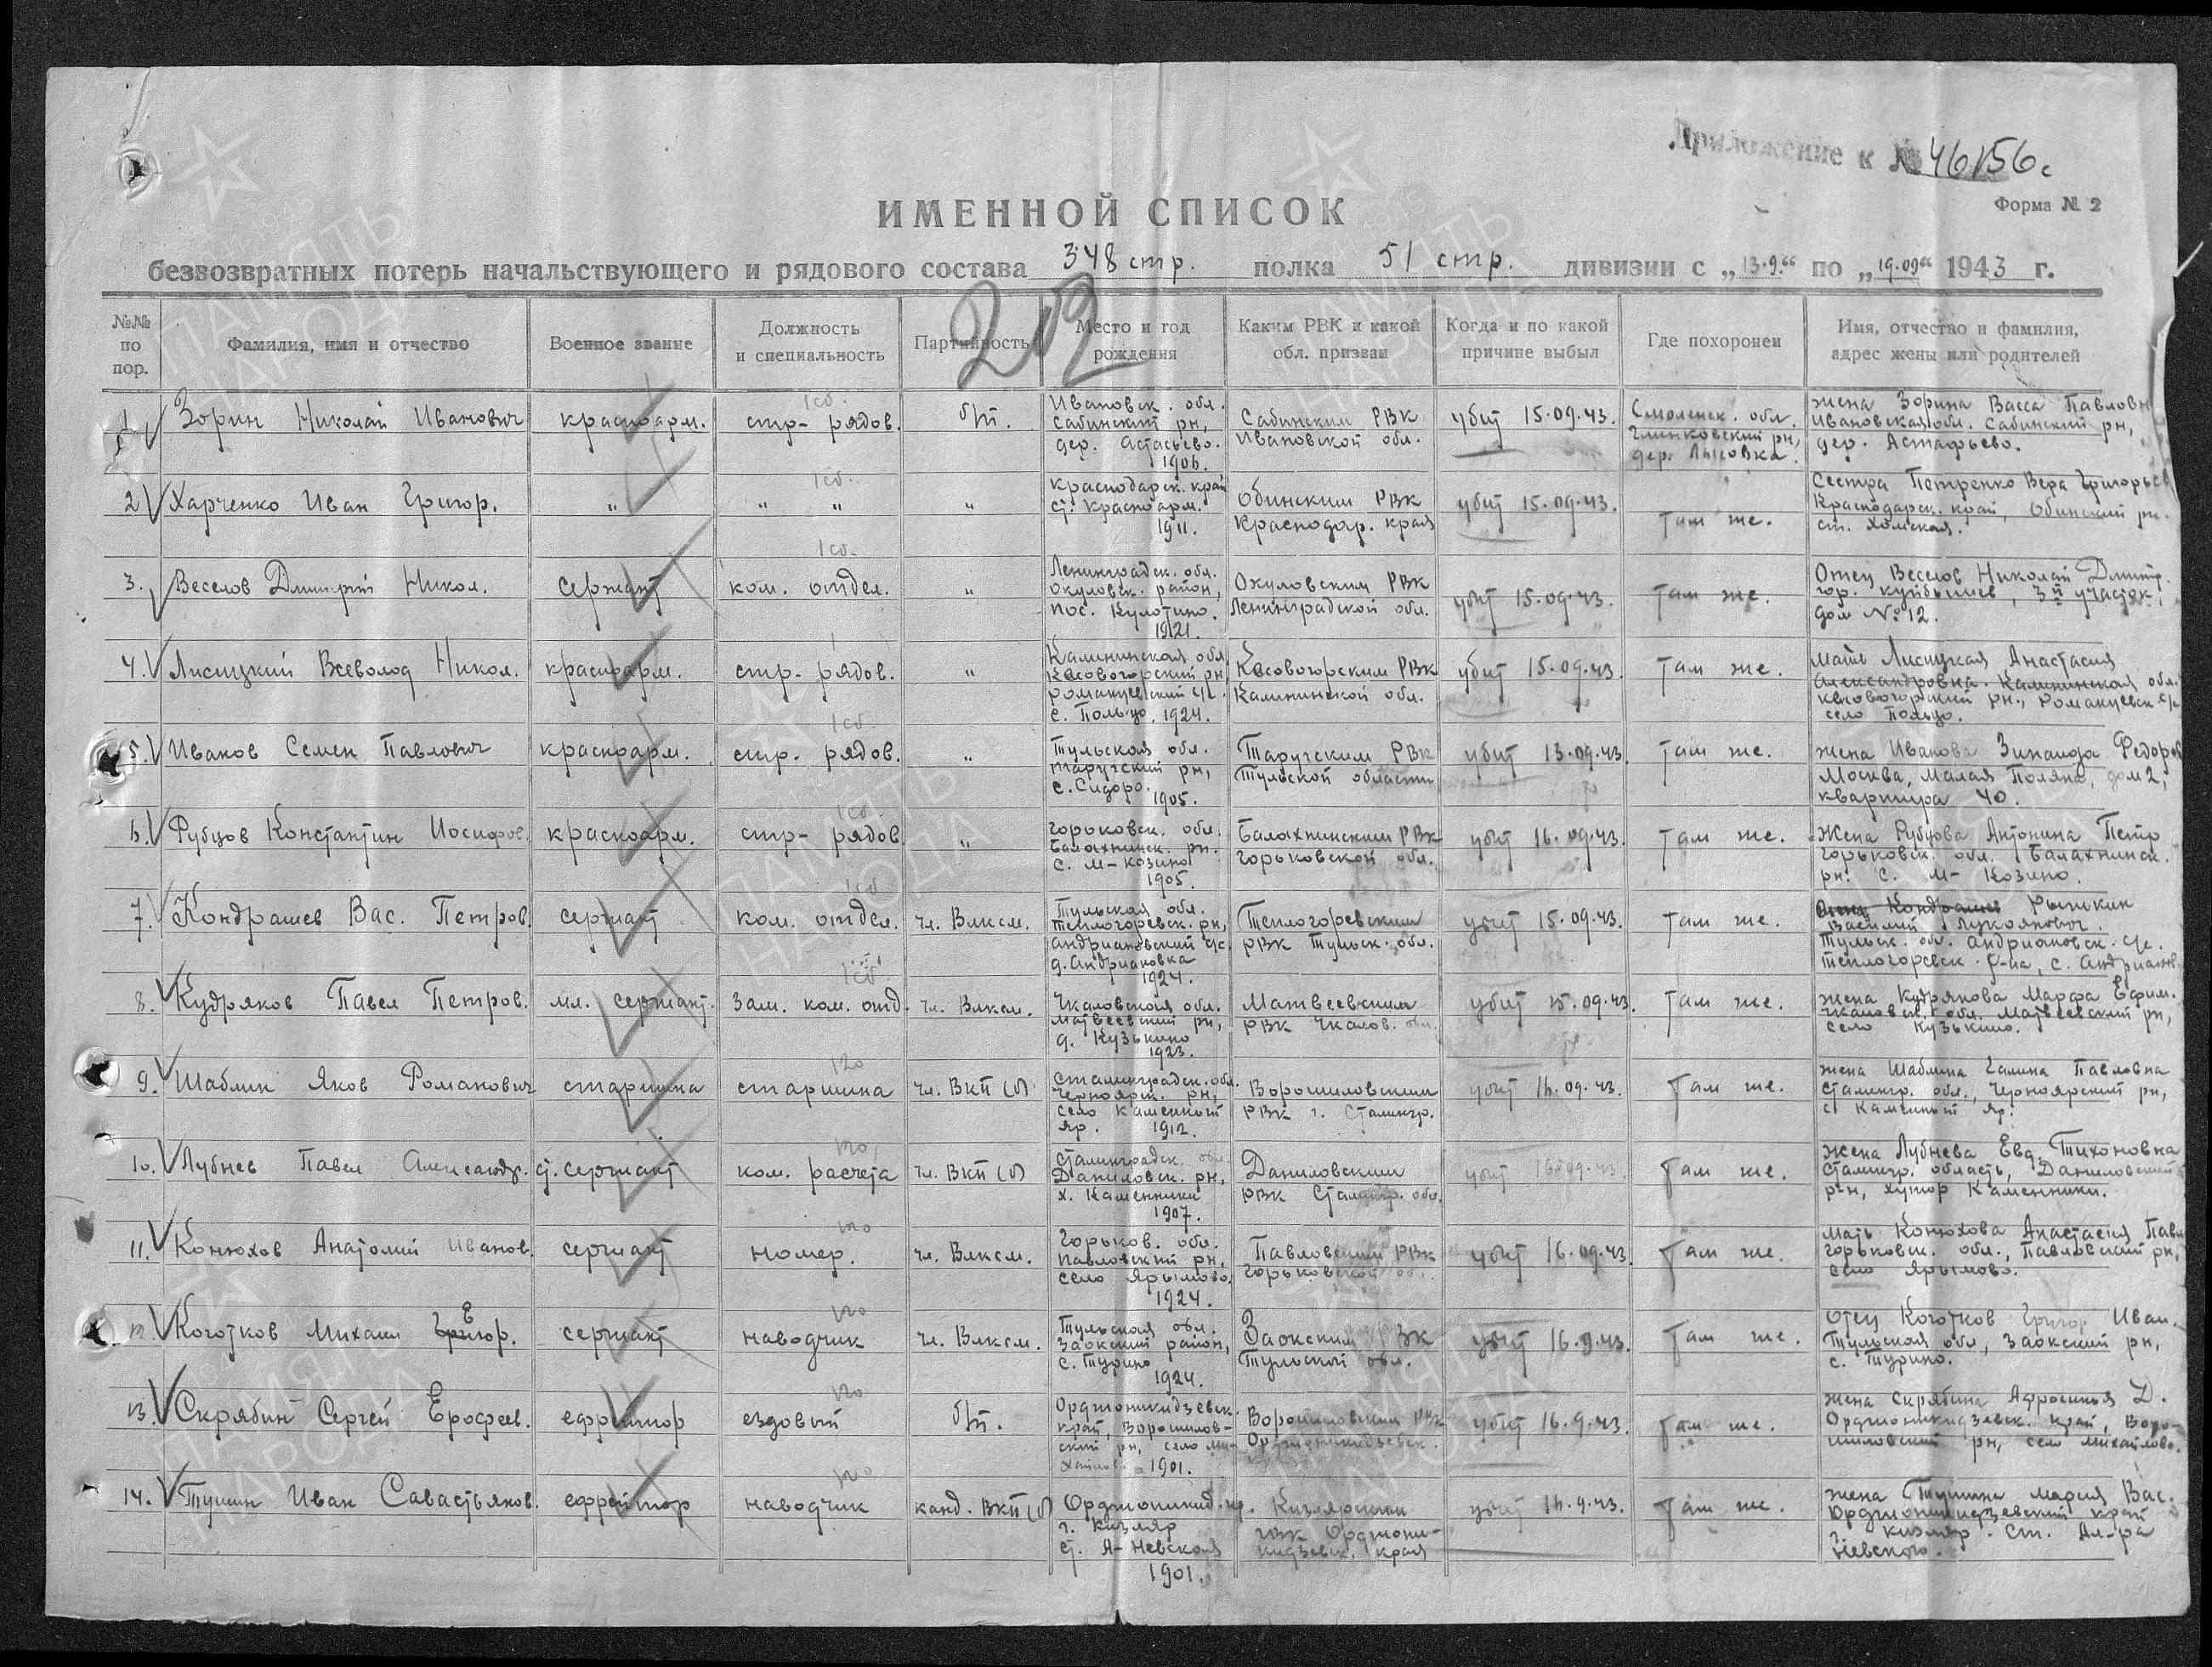 Приложение к № 46156с
Форма № 2
ИМЕННОЙ СПИСОК
безвозвратных потерь начальствующего и рядового состава 348 стр. полка 51 стр. дивизии с „13.9.“ по „19.09“ 1943 г.
202
№№ по пор.
Фамилия, имя и отчество
Военное звание
Должность и специальность
Партийность
Место и год рождения
Каким РВК и какой обл. призван
Когда и по какой причине выбыл
Где похоронен
Имя, отчество и фамилия, адрес жены или родителей
1 Зорин Николай Иванович красноарм. стр- рядов. 1сб. б/п.
Ивановск. обл.
Савинский рн,
дер. Астасьево.
1906.
Савинским РВК
Ивановской обл.
убит 15.09.43.
Смоленск. обл.
Глинковский рн,
жена Зорина Васса Павловн
Ивановская обл. Савинский рн,
дер. Астафьево.
2 Харченко Иван Григор. " " " 1сб. "
Краснодарск. край
ст. Красноарм.
1911.
Абинским РВК
Краснодар. края
убит 15.09.43.
там же.
Сестра Петренко Вера Григорьев
Краснодарск. край, Абинский рн.
ст. Холмская.
3. Веселов Дмитрий Никол. сержант ком. отдел. 1сб. "
Ленинградск. обл.
Окуловск. район,
пос. Кулотино.
1921.
Окуловским РВК
Ленинградской обл.
убит 15.09.43.
там же.
Отец Веселов Николай Дмитр.
гор. Куйбышев, 3й участок,
дом № 12.
4. Лисицкий Всеволод Никол. красноарм. стр- рядов. "
Калининская обл
Кесовогорский рн
с. Польцо, 1924.
Кесовогорским РВК
Калининской обл.
убит 15.09.43.
там же.
Мать Лисицкая Анастасия
Александровна. Калининская обл.
Кесовогорский рн., Романцевск с/с
село Польцо.
5. Иванов Семен Павлович красноарм. стр. рядов. 1сб. "
Тульская обл.
Тарусский рн,
с. Сидоро.
1905.
Тарусским РВК
Тульской области
убит 13.09.43.
там же.
жена Иванова Зинаида Федоров
Москва, Малая Поляна, дом 2,
квартира 40.
6. Рубцов Константин Иосифов. красноарм. стр- рядов. 1сб. "
Горьковск. обл.
Балахнинск. рн.
с. М-Козино
1905.
Балахнинским РВК
Горьковской обл.
убит 16.09.43.
там же.
Жена Рубцова Антонина Петр
Горьковск. обл. Балахнинск.
рн. с. М- Козино.
7. Кондрашев Вас. Петров. сержант ком. отдел. 1сб чл. Влксм.
Тульская обл.
Теплогоревск. рн,
Андриановский с/с.
д. Андриановка
1924.
Теплогоревским
РВК Тульск. обл.
убит 15.09.43.
там же.
Кондрашев Рыжкин
Василий Лукоянович.
Тульск. обл. Андриановск. с/с.
Теплогоревск. р-на, с. Андрианов
8. Кудряков Павел Петров. мл. сержант. зам. ком. отд. 1сб чл. Влксм.
Чкаловская обл.
Матвеевский рн,
д. Кузькино
1923.
Матвеевским
РВК Чкалов. обл.
убит 15.09.43
там же.
жена Кудрякова Марфа Ефим.
Чкаловск. обл. Матвеевский рн,
село Кузькино.
9. Шаблин Яков Романович старшина старшина 120 чл. ВКП(б)
Сталинградск. обл.
Черноярск. рн,
село Каменный
яр. 1912.
Ворошиловским
РВК г. Сталингр.
убит 16.09.43.
там же.
жена Шаблина Галина Павловна
Сталингр. обл., Черноярский рн,
с. Каменный яр.
10. Лубнев Павел Александр. ст. сержант ком. расчета 120 чл. ВКП(б)
Сталинградск. обл.
Даниловск. рн,
х. Каменники
1907.
Даниловским
РВК Сталингр. обл.
убит 16.09.43
там же.
жена Лубнева Евд. Тихоновна
Сталингр. область, Даниловский
р-н, хутор Каменники.
11. Конюхов Анатолий Иванов. сержант номер. 120 чл. Влксм.
Горьков. обл.
Павловский рн,
село Ярымово.
1924.
Павловским РВК
Горьковской об.
убит 16.09.43
там же.
мать Конюхова Анастасия Павл
Горьковск. обл., Павловский рн,
село Ярымово.
12. Коготков Михаил Григор. Е сержант наводчик 120 чл. Влксм.
Тульская обл.
Заокский район,
с. Турино
1924.
Заокским РВК
Тульской обл.
убит 16.9.43.
там же.
отец Коготков Григор Иван.
Тульская обл, Заокский рн,
с. Турино.
13. Скрябин Сергей Ерофеев. ефрейтор ездовый 120 б/п.
Орджоникидзевск.
край, Ворошилов-
ский рн, село Ми-
хайлово 1901.
Ворошиловским РВК
Орджоникидзевск.
убит 16.9.43.
там же.
жена Скрябина Афросинья Д.
Орджоникидзевск. край, Воро-
шиловский рн, село Михайлово.
14. Тушин Иван Савастьянов. ефрейтор наводчик 120 канд. ВКП(б)
Орджоникид. кр.
г. Кизляр
ст. А-Невская
1901.
Кизлярским
РВК Орджони-
кидзевск. края
убит 16.9.43.
там же.
жена Тушина Мария Вас.
Орджоникидзевский край
г. Кизляр. ст. Ал-ра
Невского.
ПАМЯТЬ НАРОДА